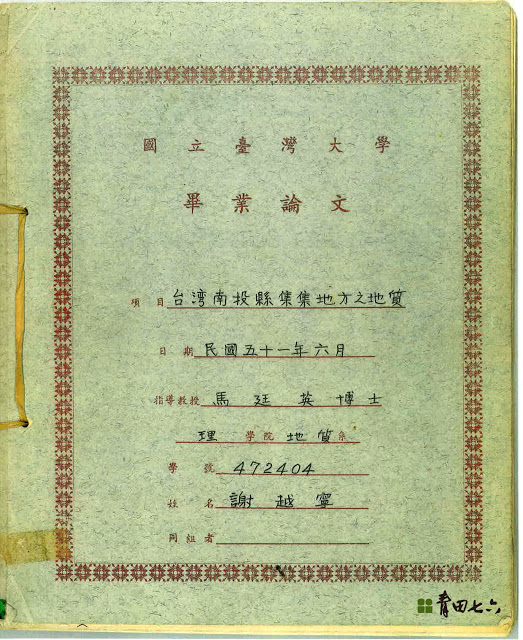 國立臺灣大學
畢業論文
項目 台湾南投縣集集地方之地質
日期 民國五十一年六月
指導教授 馬廷英博士
理學院地質系
學號 472404
姓名 謝越寧
同組者
青田七六